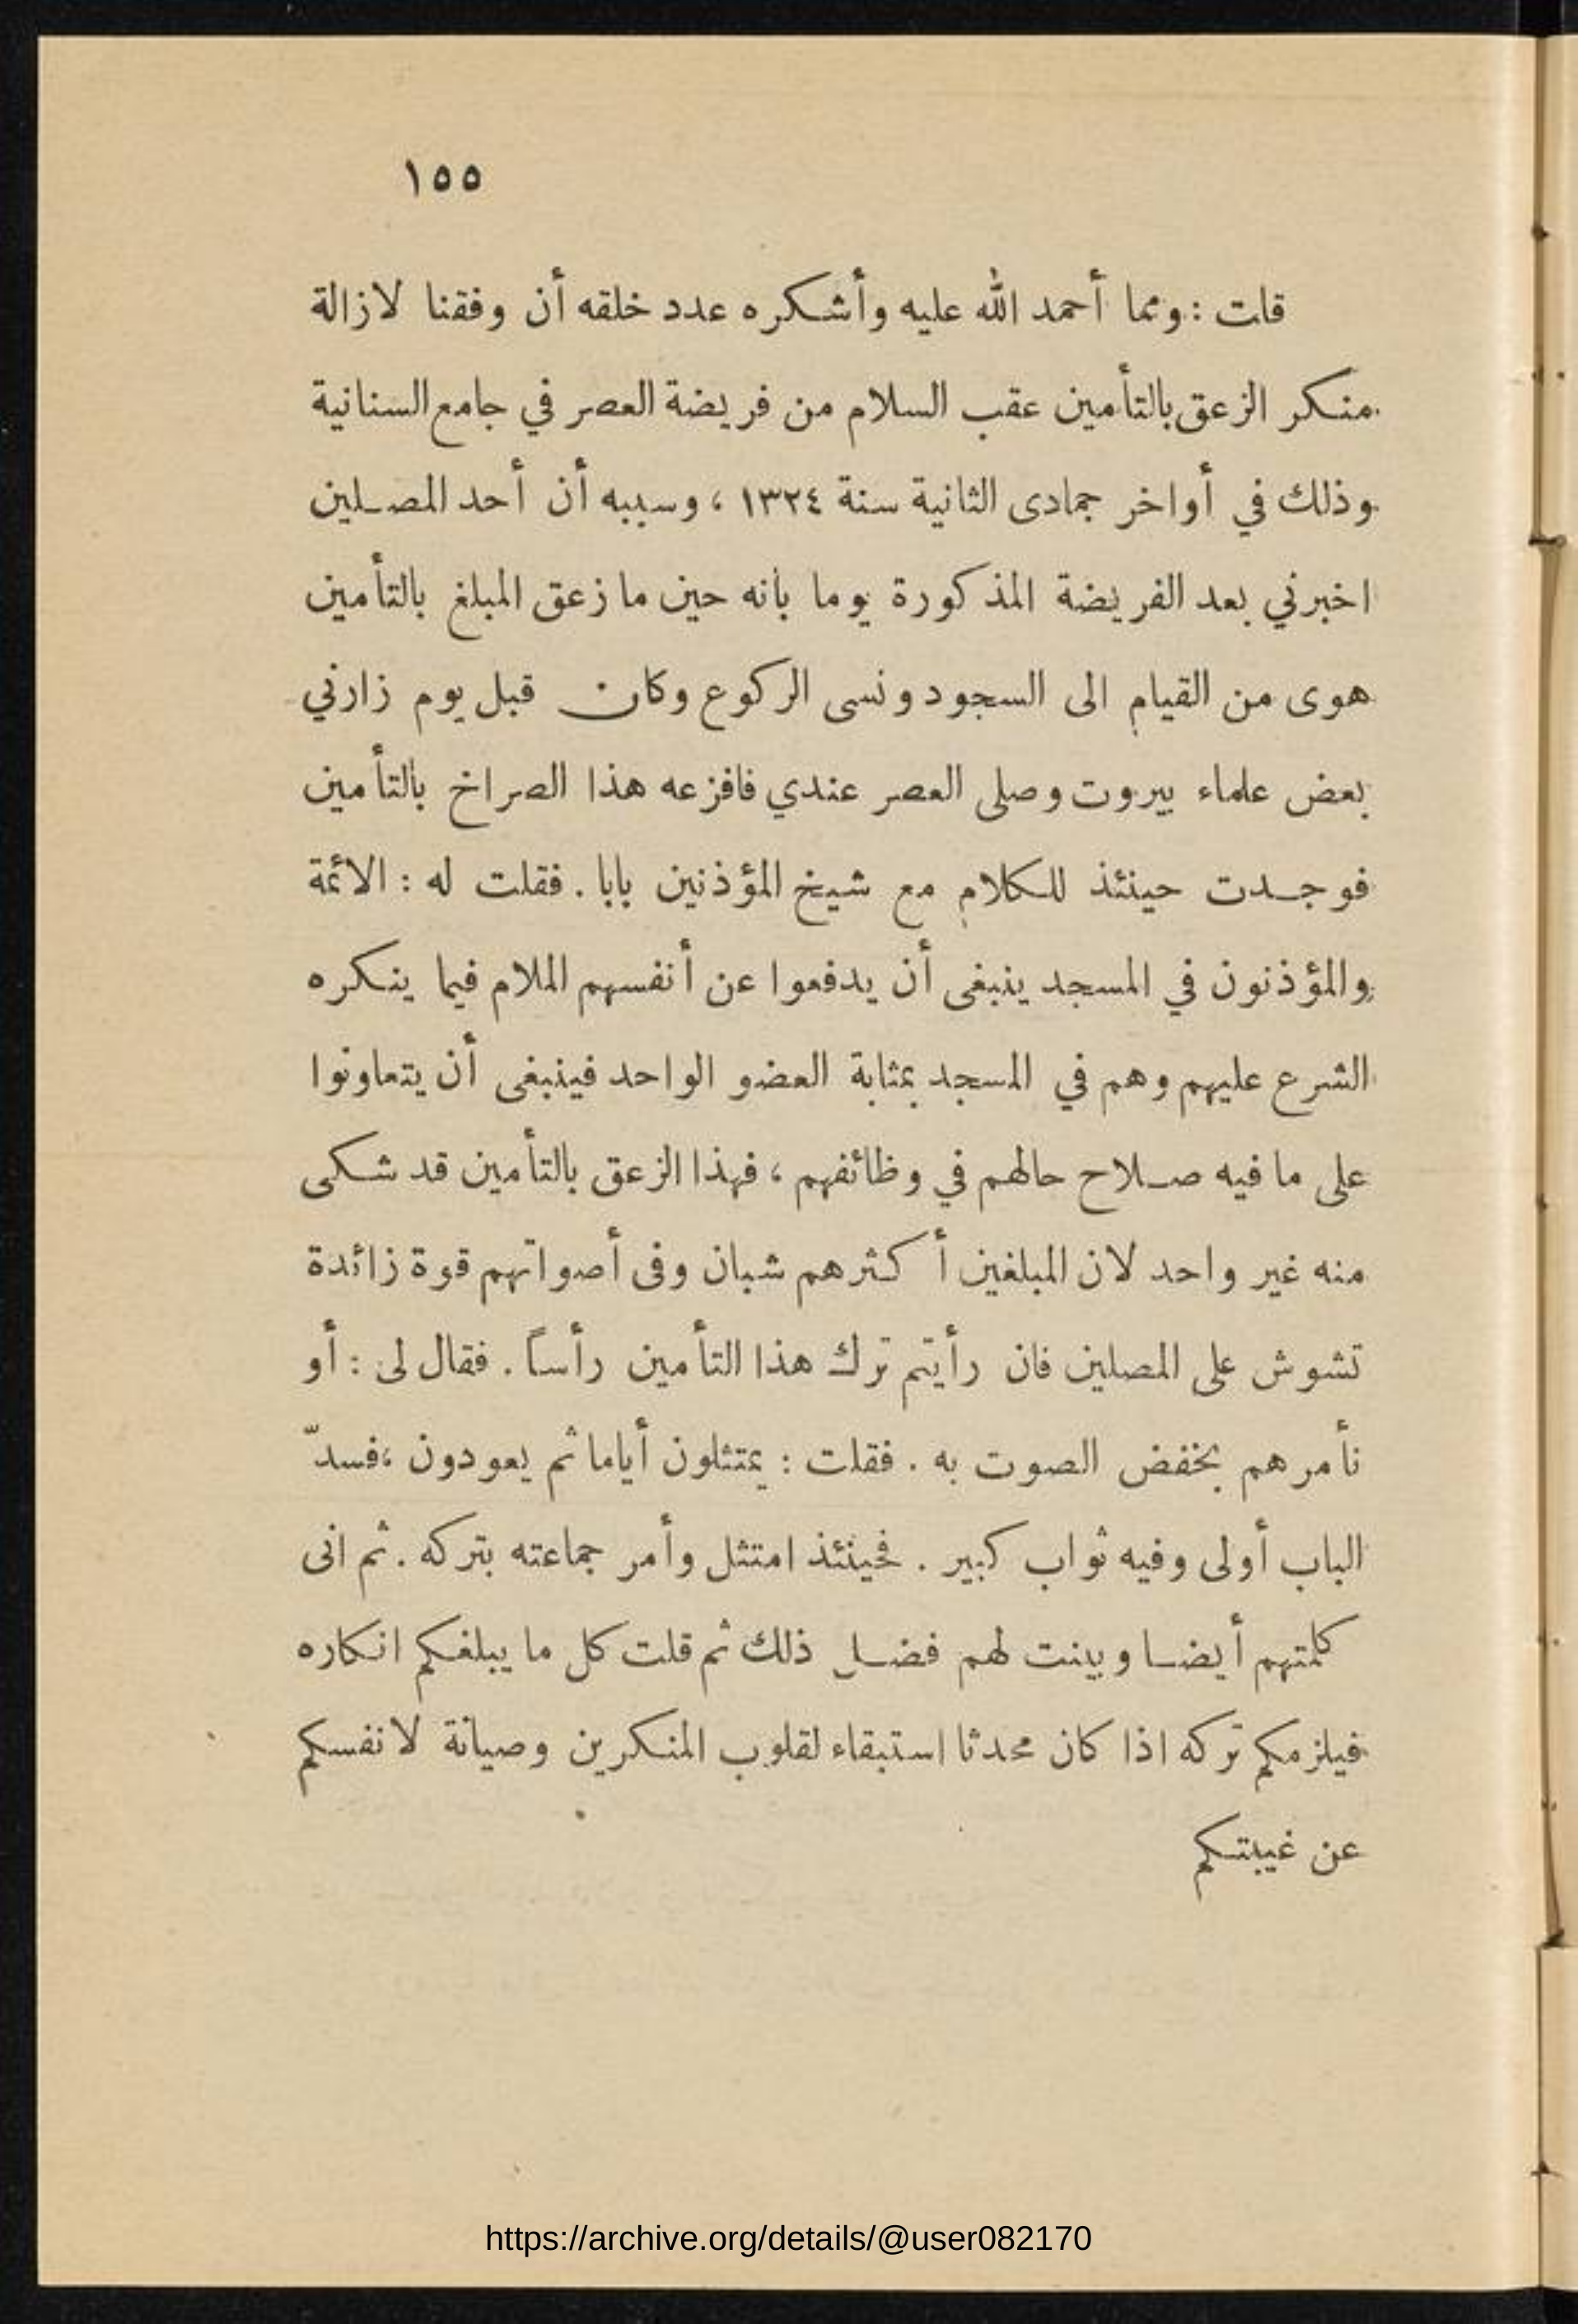 ١٥٥
قلت : ومما أحمد الله عليه وأشكره عدد خلقه أن وفقنا لازالة
منكر الزعق بالتأمين عقب السلام من فريضة العصر في جامع السنانية
وذلك في أواخر جمادى الثانية سنة ١٣٢٤ ، وسببه أن أحد المصلين
اخبرني بعد الفريضة المذكورة يوما بانه حين ما زعق المبلغ بالتأمين
هوى من القيام الى السجود ونسى الركوع وكان قبل يوم زارني
بعض علماء بيروت وصلى العصر عندي فافزعه هذا الصراخ بالتأمين
فوجدت حينئذ للكلام مع شيخ المؤذنين بابا . فقلت له : الائمة
والمؤذنون في المسجد ينبغى أن يدفعوا عن أنفسهم الملام فيما ينكره
الشرع عليهم وهم في المسجد بمثابة العضو الواحد فينبغى أن يتعاونوا
على ما فيه صلاح حالهم في وظائفهم ، فهذا الزعق بالتأمين قد شكى
منه غير واحد لان المبلغين أكثرهم شبان وفى أصواتهم قوة زائدة
تشوش على المصلين فان رأيتم ترك هذا التأمين رأساً . فقال لى : أو
نأمرهم بخفض الصوت به . فقلت : يمتثلون أياما ثم يعودون ، فسدّ
الباب أولى وفيه ثواب كبير . فحينئذ امتثل وأمر جماعته بتركه . ثم انى
كلمتهم أيضا وبينت لهم فضل ذلك ثم قلت كل ما يبلغكم انكاره
فيلزمكم تركه اذا كان محدثا استبقاء لقلوب المنكرين وصيانة لانفسكم
عن غيبتكم
https://archive.org/details/@user082170